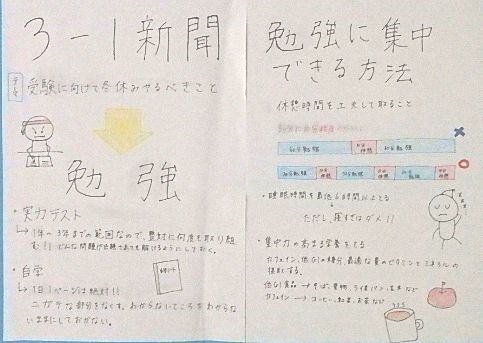 3-1新聞
テーマ
受験に向けて冬休みやるべきこと
勉強
・実力テスト
→1年〜3年までの範囲なので、教材に何度も取り組
む!! どんな問題が出題されても解けるようにしておく。
・自学
→1日1ページは絶対!!
ニガテな部分をなくす。わからないところをわからな
いままにしておかない。
自学ノート
勉強に集中
できる方法
休憩時間を工夫して取ること
60分勉強
休憩
30分勉強
休憩
30分勉強
休憩
・睡眠時間を最低6時間以上とる
ただし、寝すぎはダメ!!
・集中力の高まる栄養をとる
カフェイン、低GIの糖分、最適な量のビタミンとミネラルの
低GI食品→そば、果物、ライ麦パン、玄米など
カフェイン→コーヒー、紅茶、お茶など